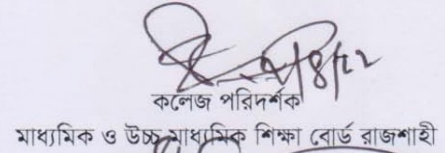 কলেজ পরিদর্শক
মাধ্যমিক ও উচ্চ মাধ্যমিক শিক্ষা বোর্ড রাজশাহী